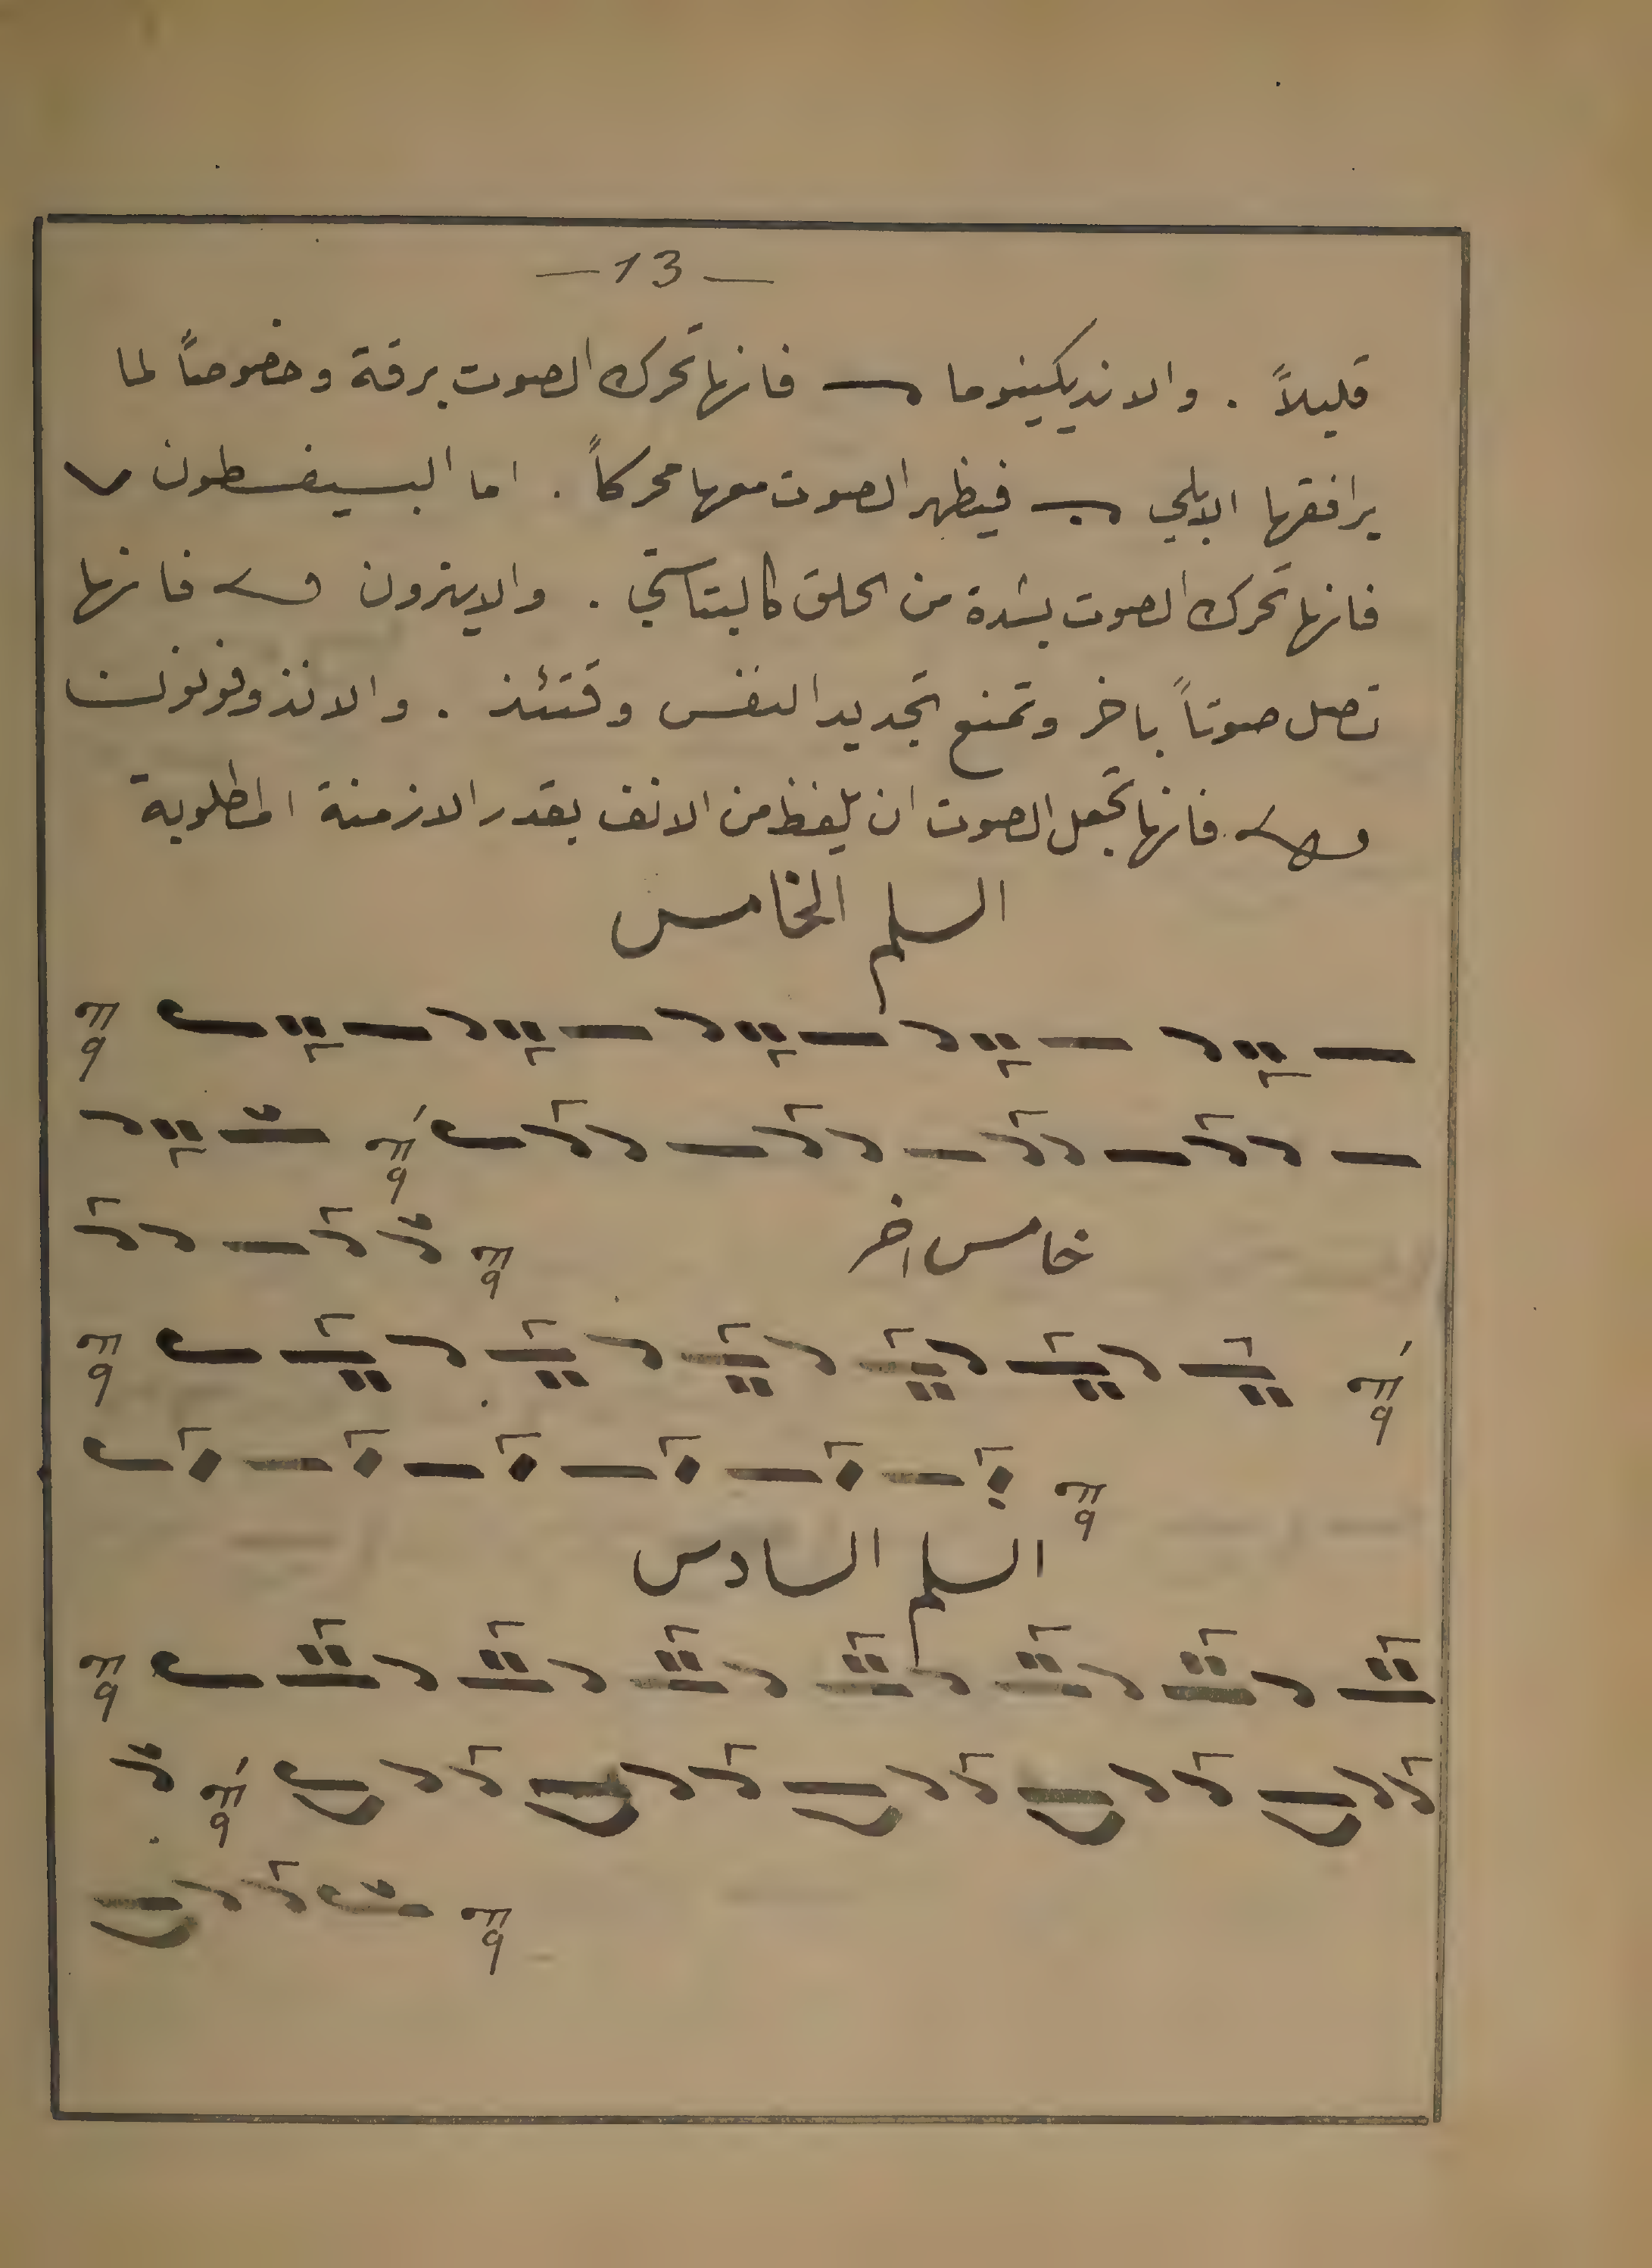 — 13 —
قليلاً . والانديكينوما فانها تحرك الصوت برقة وخصوصاً لما
يرافقها الابلي فيظهر الصوت معها محركاً . اما البسيفسطون
فانها تحرك الصوت بشدة من الحلق كالبتاستي . والايترون فانها
تصل صوتاً باخر وتمنع تجديد النفس وقتئذ . والانذوفونون
فانها تجعل الصوت ان يلفظ من الانف بقدر الازمنة المطلوبة
السلم الخامس
خامس اخر
السلم السادس